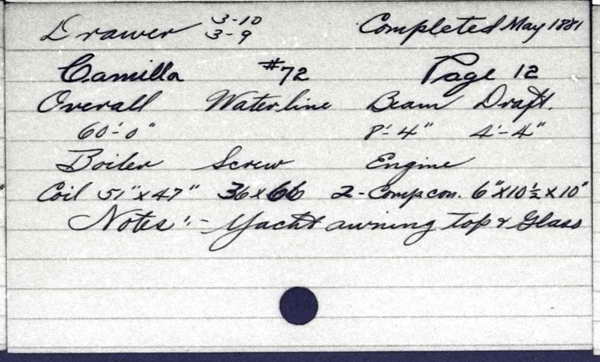 Drawer 3-10 3-9 Completed May 1881
Camilla #72 Page 12
Overall Waterline Beam Draft.
60'-0" 8'-4" 4'-4"
Boiler Screw Engine
Coil 51"x47" 36x66 2-Comp con. 6"x10½x10"
Notes:- Yacht awning top & Glass